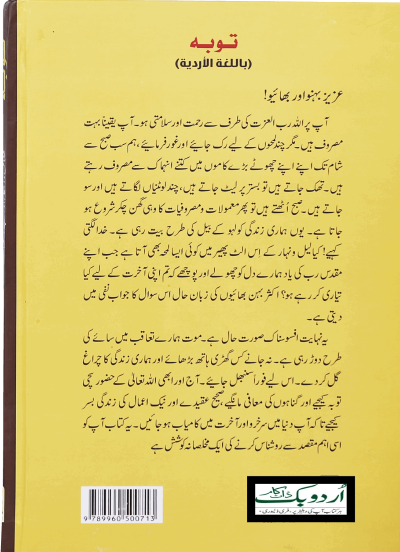 توبہ
(باللغة الأردية)
عزیز بہنو اور بھائیو!
آپ پر اللہ رب العزت کی طرف سے رحمت اور سلامتی ہو۔ آپ یقیناً بہت
مصروف ہیں۔ مگر چند لمحوں کے لیے رک جائیے اور غور فرمائیے، ہم سب صبح سے
شام تک اپنے اپنے چھوٹے بڑے کاموں میں کتنے انہماک سے مصروف رہتے
ہیں۔ تھک جاتے ہیں تو بستر پر لیٹ جاتے ہیں، چند لوٹنیاں لگاتے ہیں اور سو
جاتے ہیں۔ صبح اُٹھتے ہیں تو پھر معمولات و مصروفیات کا وہی گھن چکر شروع ہو
جاتا ہے۔ یوں ہماری زندگی کولہو کے بیل کی طرح بیت رہی ہے۔ خدا لگتی
کہیے! کیا لیل و نہار کے اِس الٹ پھیر میں کوئی ایسا لمحہ بھی آتا ہے جب اپنے
مقدس رب کی یاد ہمارے دل کو چھولے اور پوچھے کہ تم اپنی آخرت کے لیے کیا
تیاری کر رہے ہو؟ اکثر بہن بھائیوں کی زبان حال اس سوال کا جواب نفی میں
دیتی ہے۔
یہ نہایت افسوسناک صورت حال ہے۔ موت ہمارے تعاقب میں سائے کی
طرح دوڑ رہی ہے۔ نہ جانے کس گھڑی ہاتھ بڑھائے اور ہماری زندگی کا چراغ
گل کر دے۔ اس لیے فوراً سنبھل جائیے۔ آج اور ابھی اللہ تعالیٰ کے حضور سچی
توبہ کیجیے اور گناہوں کی معافی مانگیے، صحیح عقیدے اور نیک اعمال کی زندگی بسر
کیجیے تاکہ آپ دنیا میں سرخرو اور آخرت میں کامیاب ہو جائیں۔ یہ کتاب آپ کو
اسی اہم مقصد سے روشناس کرنے کی ایک مخلصانہ کوشش ہے
اُردو بک
9 789960 500713
توبہ